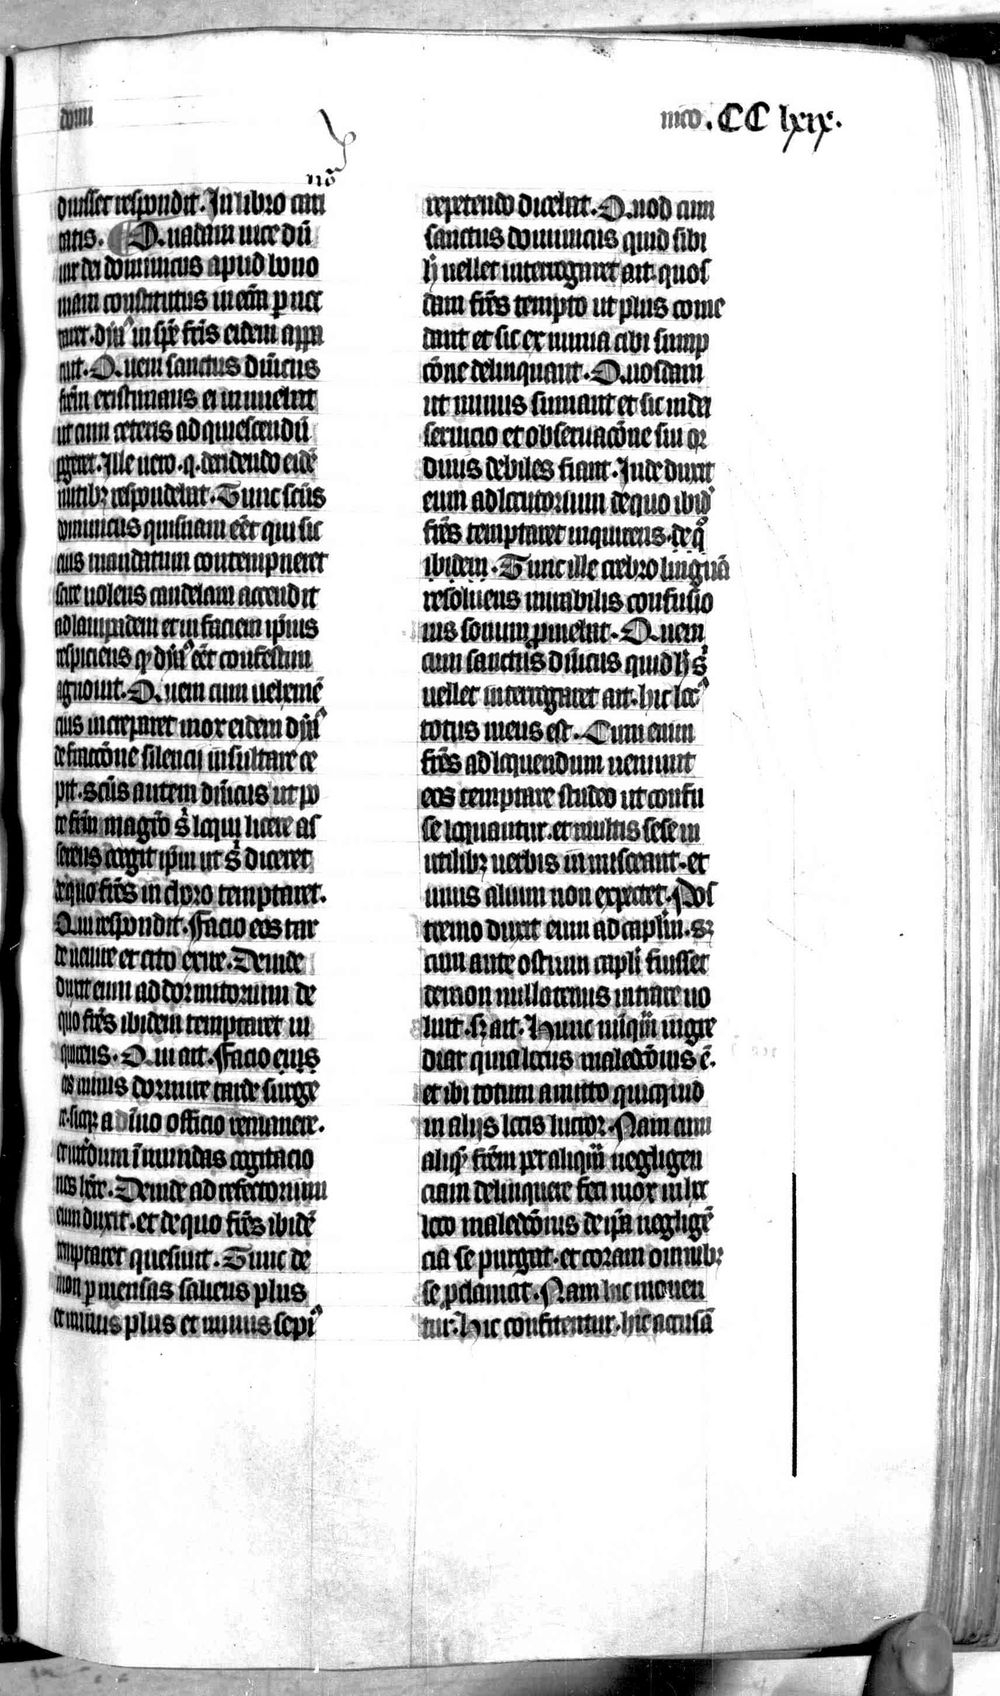 domi
nico . CC lxix.
duisset respondit. In libro cari
tatis. Quadam uice dū
uir dei dominicus apud bono
niam constitutus in ecc̄m p noc
taret. dyaᵒ in spē fr̄is eidem appa
ruit. Quem sanctus dn̄icus
frēm existimans ei innuebat
ut cum ceteris ad quiescendū
pgeret. Ille uero .q. deridendo eidē
nutibꝫ respondebat. Tunc sc̄us
dominicus quisnam eēt qui sic
eius mandatum contempneret
scire uolens candelam accendit
ad lampadem et in faciem ip̄ius
respiciens qꝫ dyaᵒ eēt confestim
agnouit. Quem cum uehemē
cius increparet mox eidem dyaᵒ
de fraccōne silencij insultare ce
pit. sc̄us autem dn̄icus ut po
te fr̄m magr̄o s̄ loqui licere as
serens coegit ip̄m ut s̄ diceret
de quo fr̄es in choro temptaret.
Qui respondit. Facio eos tar
de uenire et cito exire. Deinde
duxit eum ad dormitorium de
quo fr̄es ibidem temptaret in
quirens. Qui ait. Facio eius
os nimis dormire tarde surge
re. sicqꝫ a diuīo officio remanere.
et interdum īmundas cogitacio
nes hr̄e. Deinde ad refectorium
eum duxit. et de quo fr̄es ibidē
temptaret quesiuit. Tunc de
mon p mensas saliens plus
et minus plus et minus sepiᵒ
repetendo dicebat. Quod cum
sanctus dominicus quid sibi
h̄ uellet interrogaret ait. quos
dam fr̄es tempto ut plus come
dant et sic ex nimia cibi sump
cōne delinquant. Quosdam
ut minus sumant et sic in dei
seruicio et obseruacōne sui or
dinis debiles fiant. Inde duxit
eum ad locutorium de quo ibid'
fr̄es temptaret inquirens. de qᵒ
ibidem. Tunc ille crebro linguā
resoluens mirabilis confusio
nis sonum promebat. Quem
cum sanctus dn̄icus quid h s'
uellet interrogaret ait. hic locᵒ
totus meus est. Cum enim
fr̄es ad loquendum ueniunt
eos temptare studeo ut confu
se loquantur. et multis sese in
utilibꝫ uerbis inmisceant. et
unus alium non expectet. Pos
tremo duxit eum ad caplm̄. Sꝫ
cum ante ostium capli fuisset
demon nullatenus intrare uo
luit. sꝫ ait. Hunc nūqm̄ ingre
diar quia locus maledcōnis ē.
et ibi totum amitto quicquid
in alijs locis lucror. Nam cum
aliqᵐ frēm per aliqm̄ negligen
ciam delinquere feci mox in h loc
loco maledcōnis de ip̄a negligē
cia se purgat. et coram omnibꝫ
se pclamat. Nam hic mouen
tur. Hic confitentur. hic acusā